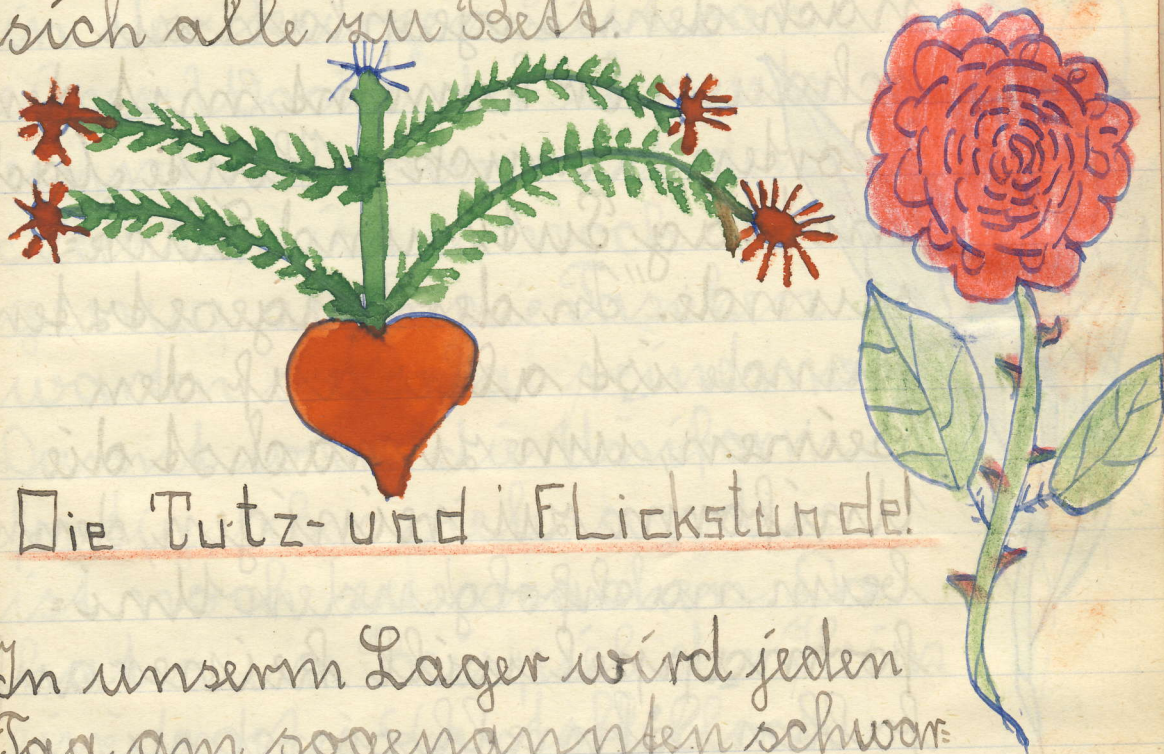 sich alle zu Bett.
Die Putz- und Flickstunde!
In unserm Lager wird jeden
Tag am sogenannten schwar=